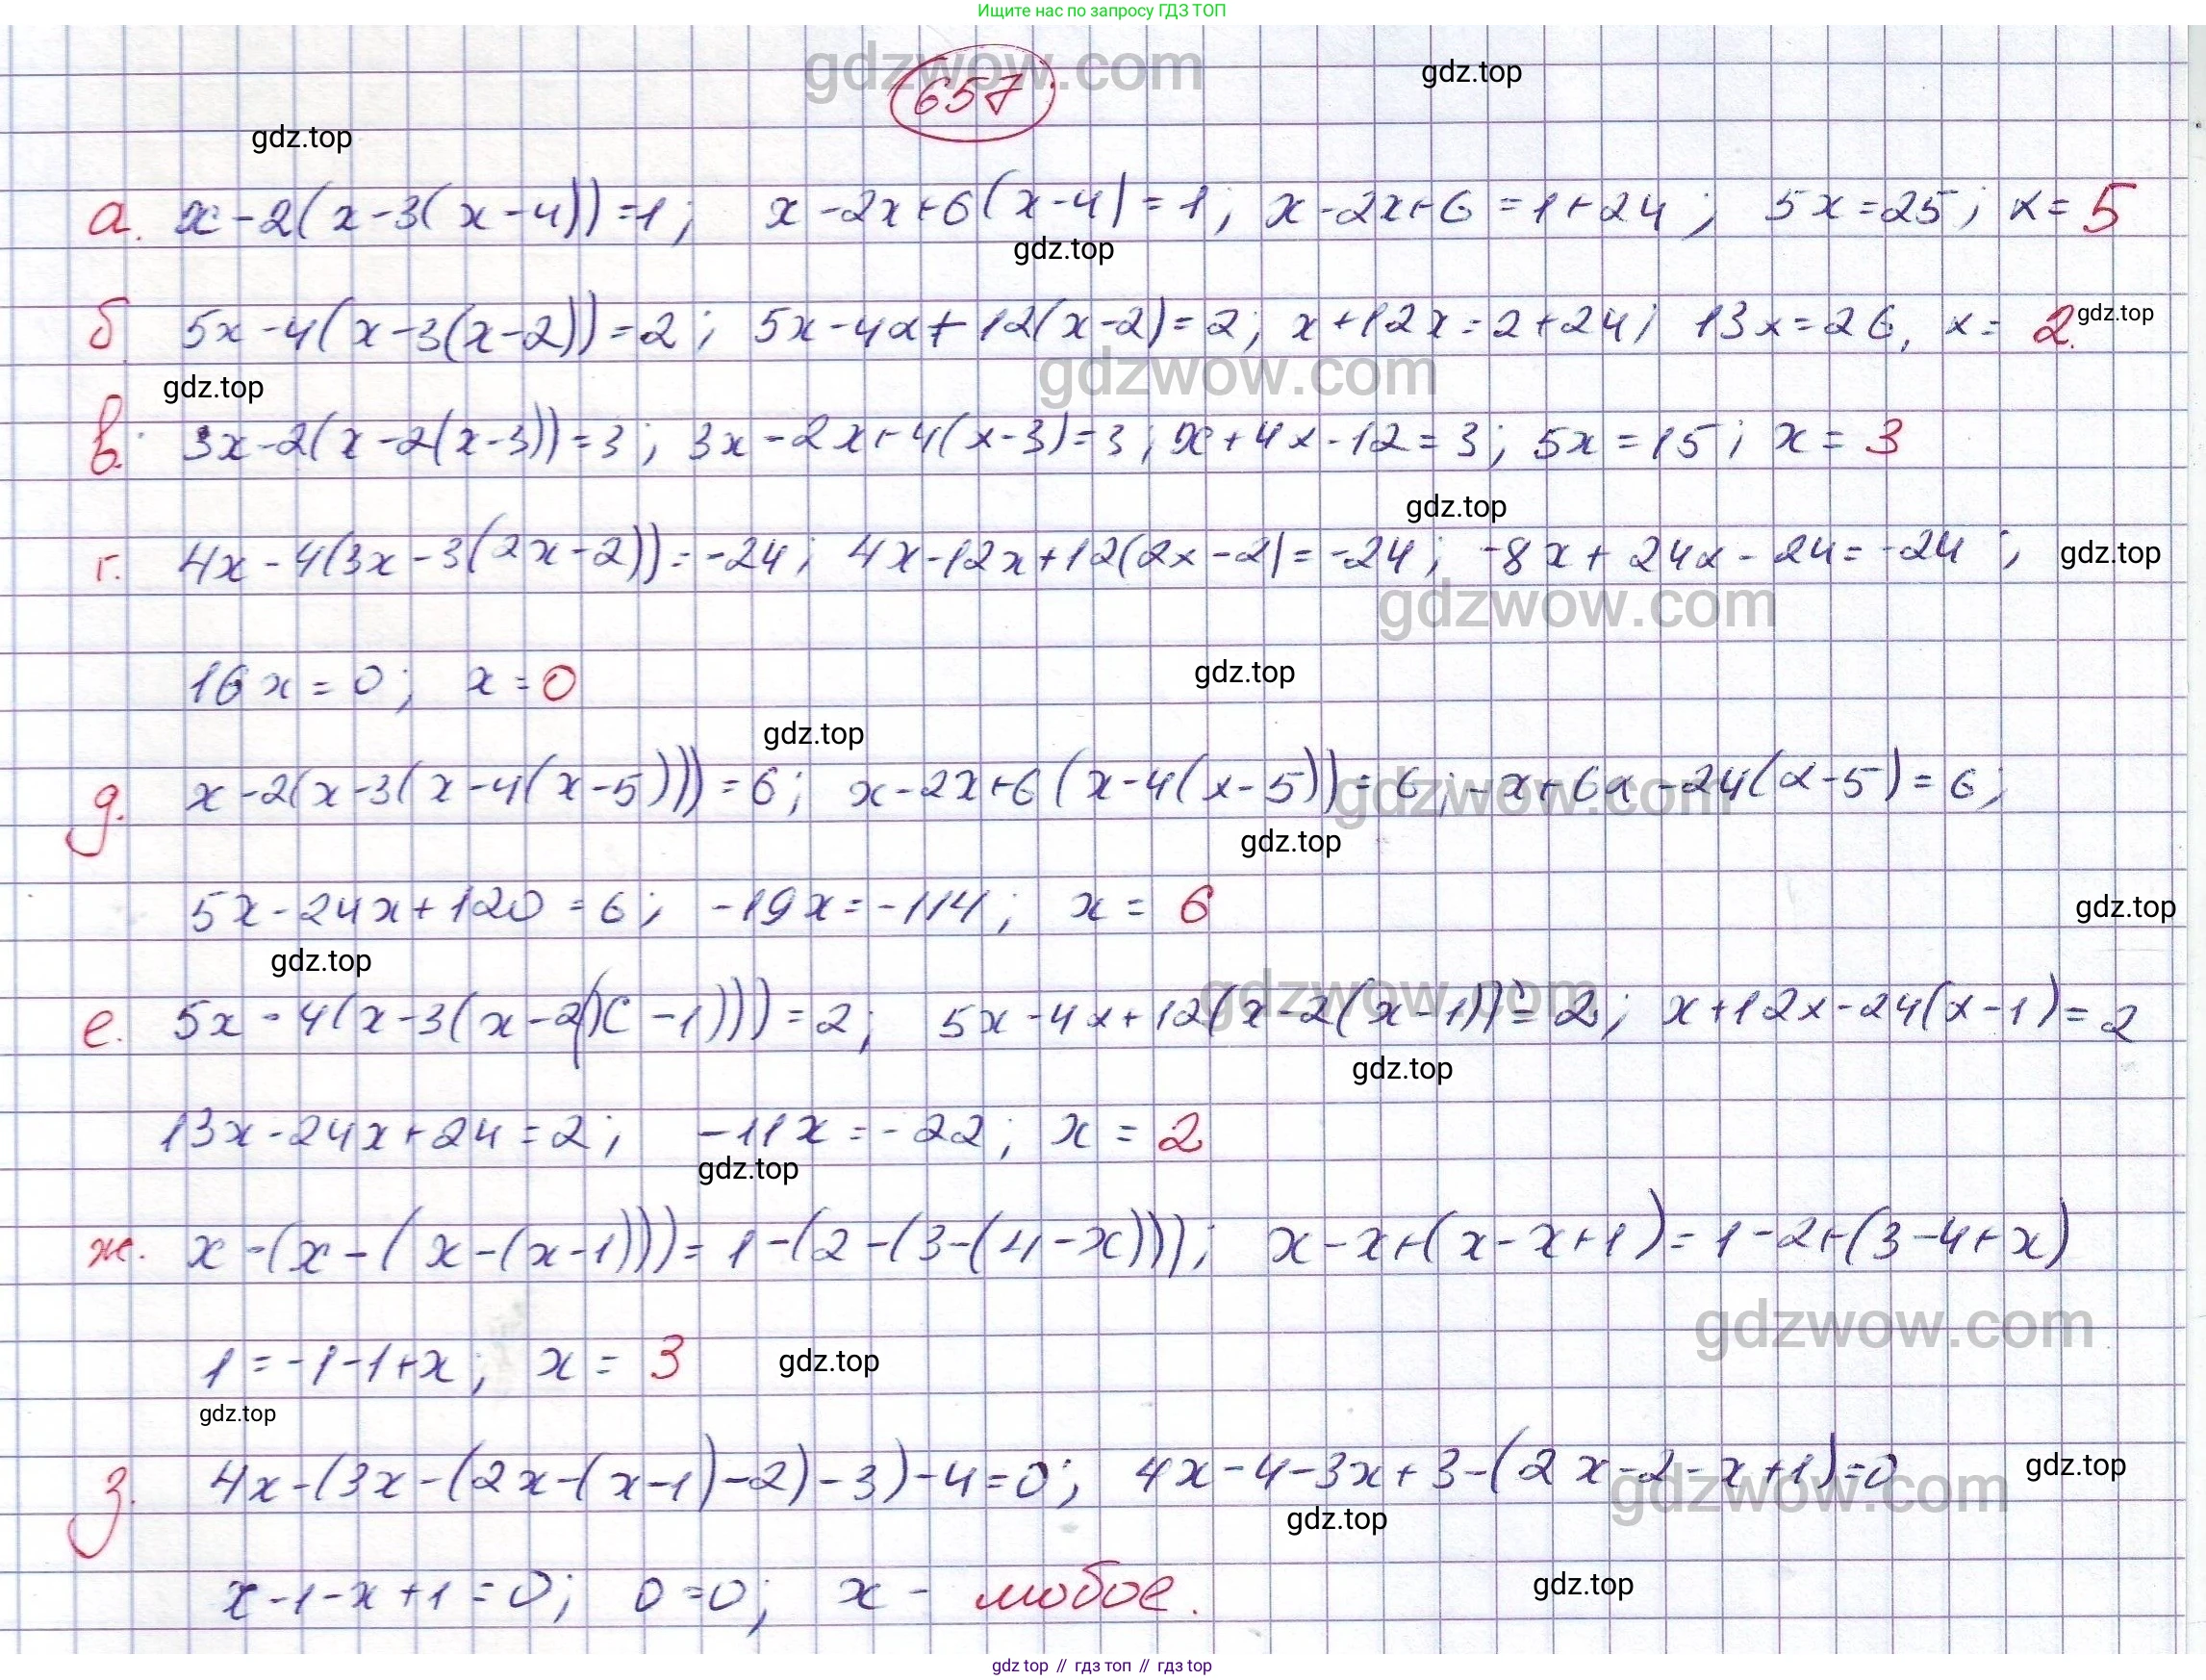 Ищите нас по запросу ГДЗ ТОП
gdzwow.com
657
gdz.top
gdz.top
а. x-2(x-3(x-4))=1; x-2x+6(x-4)=1; x-2x+6=1+24; 5x=25; x=5
gdz.top
б. 5x-4(x-3(x-2))=2; 5x-4x+12(x-2)=2; x+12x=2+24; 13x=26, x=2. gdz.top
gdzwow.com
gdz.top
в. 3x-2(x-2(x-3))=3; 3x-2x+4(x-3)=3; x+4x-12=3; 5x=15; x=3
gdz.top
г. 4x-4(3x-3(2x-2))=-24; 4x-12x+12(2x-2)=-24; -8x+24x-24=-24; gdz.top
gdzwow.com
16x=0; x=0 gdz.top
gdz.top
д. x-2(x-3(x-4(x-5)))=6; x-2x+6(x-4(x-5))=6; -x+6x-24(x-5)=6;
gdzwow.com
gdz.top
5x-24x+120=6; -19x=-114; x=6 gdz.top
gdz.top
gdzwow.com
е. 5x-4(x-3(x-2(x-1)))=2; 5x-4x+12(x-2(x-1))=2; x+12x-24(x-1)=2
gdz.top
13x-24x+24=2; -11x=-22; x=2
gdz.top
ж. x-(x-(x-(x-1)))=1-(2-(3-(4-x))); x-x+(x-x+1)=1-2+(3-4+x)
gdzwow.com
1=-1-1+x; x=3 gdz.top
gdz.top
з. 4x-(3x-(2x-(x-1)-2)-3)-4=0; 4x-4-3x+3-(2x-2-x+1)=0 gdz.top
gdzwow.com
gdz.top
x-1-x+1=0; 0=0; x- любое. gdz.top
gdz top // гдз топ // гдз top